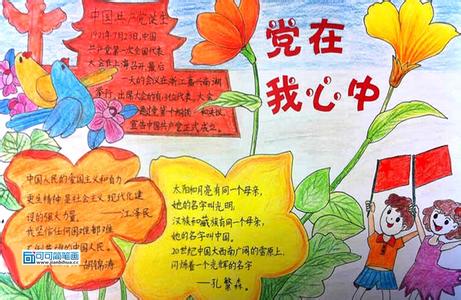 党在
我心中
中国共产党诞生
1921年7月23日，中国
共产党第一次全国代表
大会在上海召开，最后
一天的会议在浙江嘉兴南湖
举行，出席大会的有13位代表，大会
宣告中国共产党正式成立。
中国人民的爱国主义和自力
更生精神是社会主义现代化建
设的强大力量。
——江泽民
我坚信任何困难都难
不倒英雄的中国人民。
——胡锦涛
太阳和月亮有同一个母亲，
她的名字叫光明，
汉族和藏族有同一个母亲，
她的名字叫中国，
20世纪中国大西南广阔的雪原上，
闪烁着一个光辉的名字
——孔繁森。
可可简笔画
www.jianbihua.cc